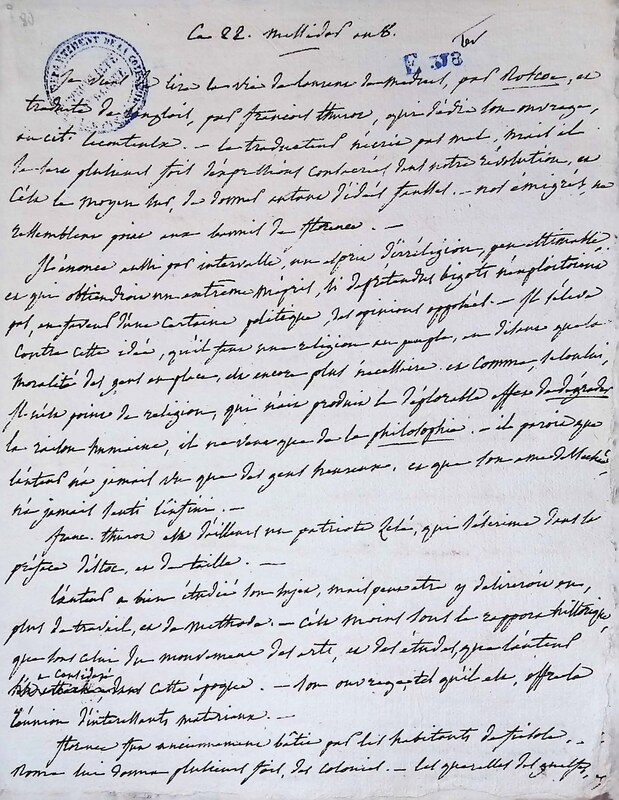 Ce 22. messidor an 8.
F 378
ter
lire la vie de Laurens de Medicis, par Roscoe, et
traduite de l'anglois, par françois thurot, qui dédie son ouvrage,
au cit. le couteulx. – le traducteur n'écrit pas mal, mais il
se sert plusieurs fois d'expressions consacrées dans notre révolution, et
c'est le moyen sur, de donner autant d'idées fausses. – nos émigrés, ne
ressemblent point aux bannis de florence. –
Il énonce aussi par intervalle, un esprit d'irréligion, peu estimable
et que obtiendroit un extrême mépris, si de prétendus bigots n'employoient
pas, en faveur d'une certaine politique, des opinions opposées. – Il s'élève
contre cette idée, qu'il faut une religion au peuple, en disant que la
moralité des gens en place, est encore plus nécessaire. et comme, selon lui,
Il n'est point de religion, qui n'ait produit le déplorable effet de dégrader
la raison humaine, il ne veut que de la philosophie. – il paroît que
l'auteur n'a jamais vu que des gens heureux, et que son ame
n'a jamais senti l'infini. –
franc. thurot est d'ailleurs un patriote zélé, qui s'escrime dans la
préface d'estoc, et de taille. –
L'auteur a bien étudié son sujet, mais peut etre y desireroit on,
plus de travail, et de méthode. – c'est moins sous le rapport historique,
que sous celui du mouvement des arts, et des études, que l'auteur
a considéré
cette époque. – Son ouvrage, tel qu'il est, offre la
réunion d'interessants matériaux. –
florence fut anciennement bâtie par les habitants de fiésole. –
Rome lui donna plusieurs fois, des colonies. – les querelles des guelfes,